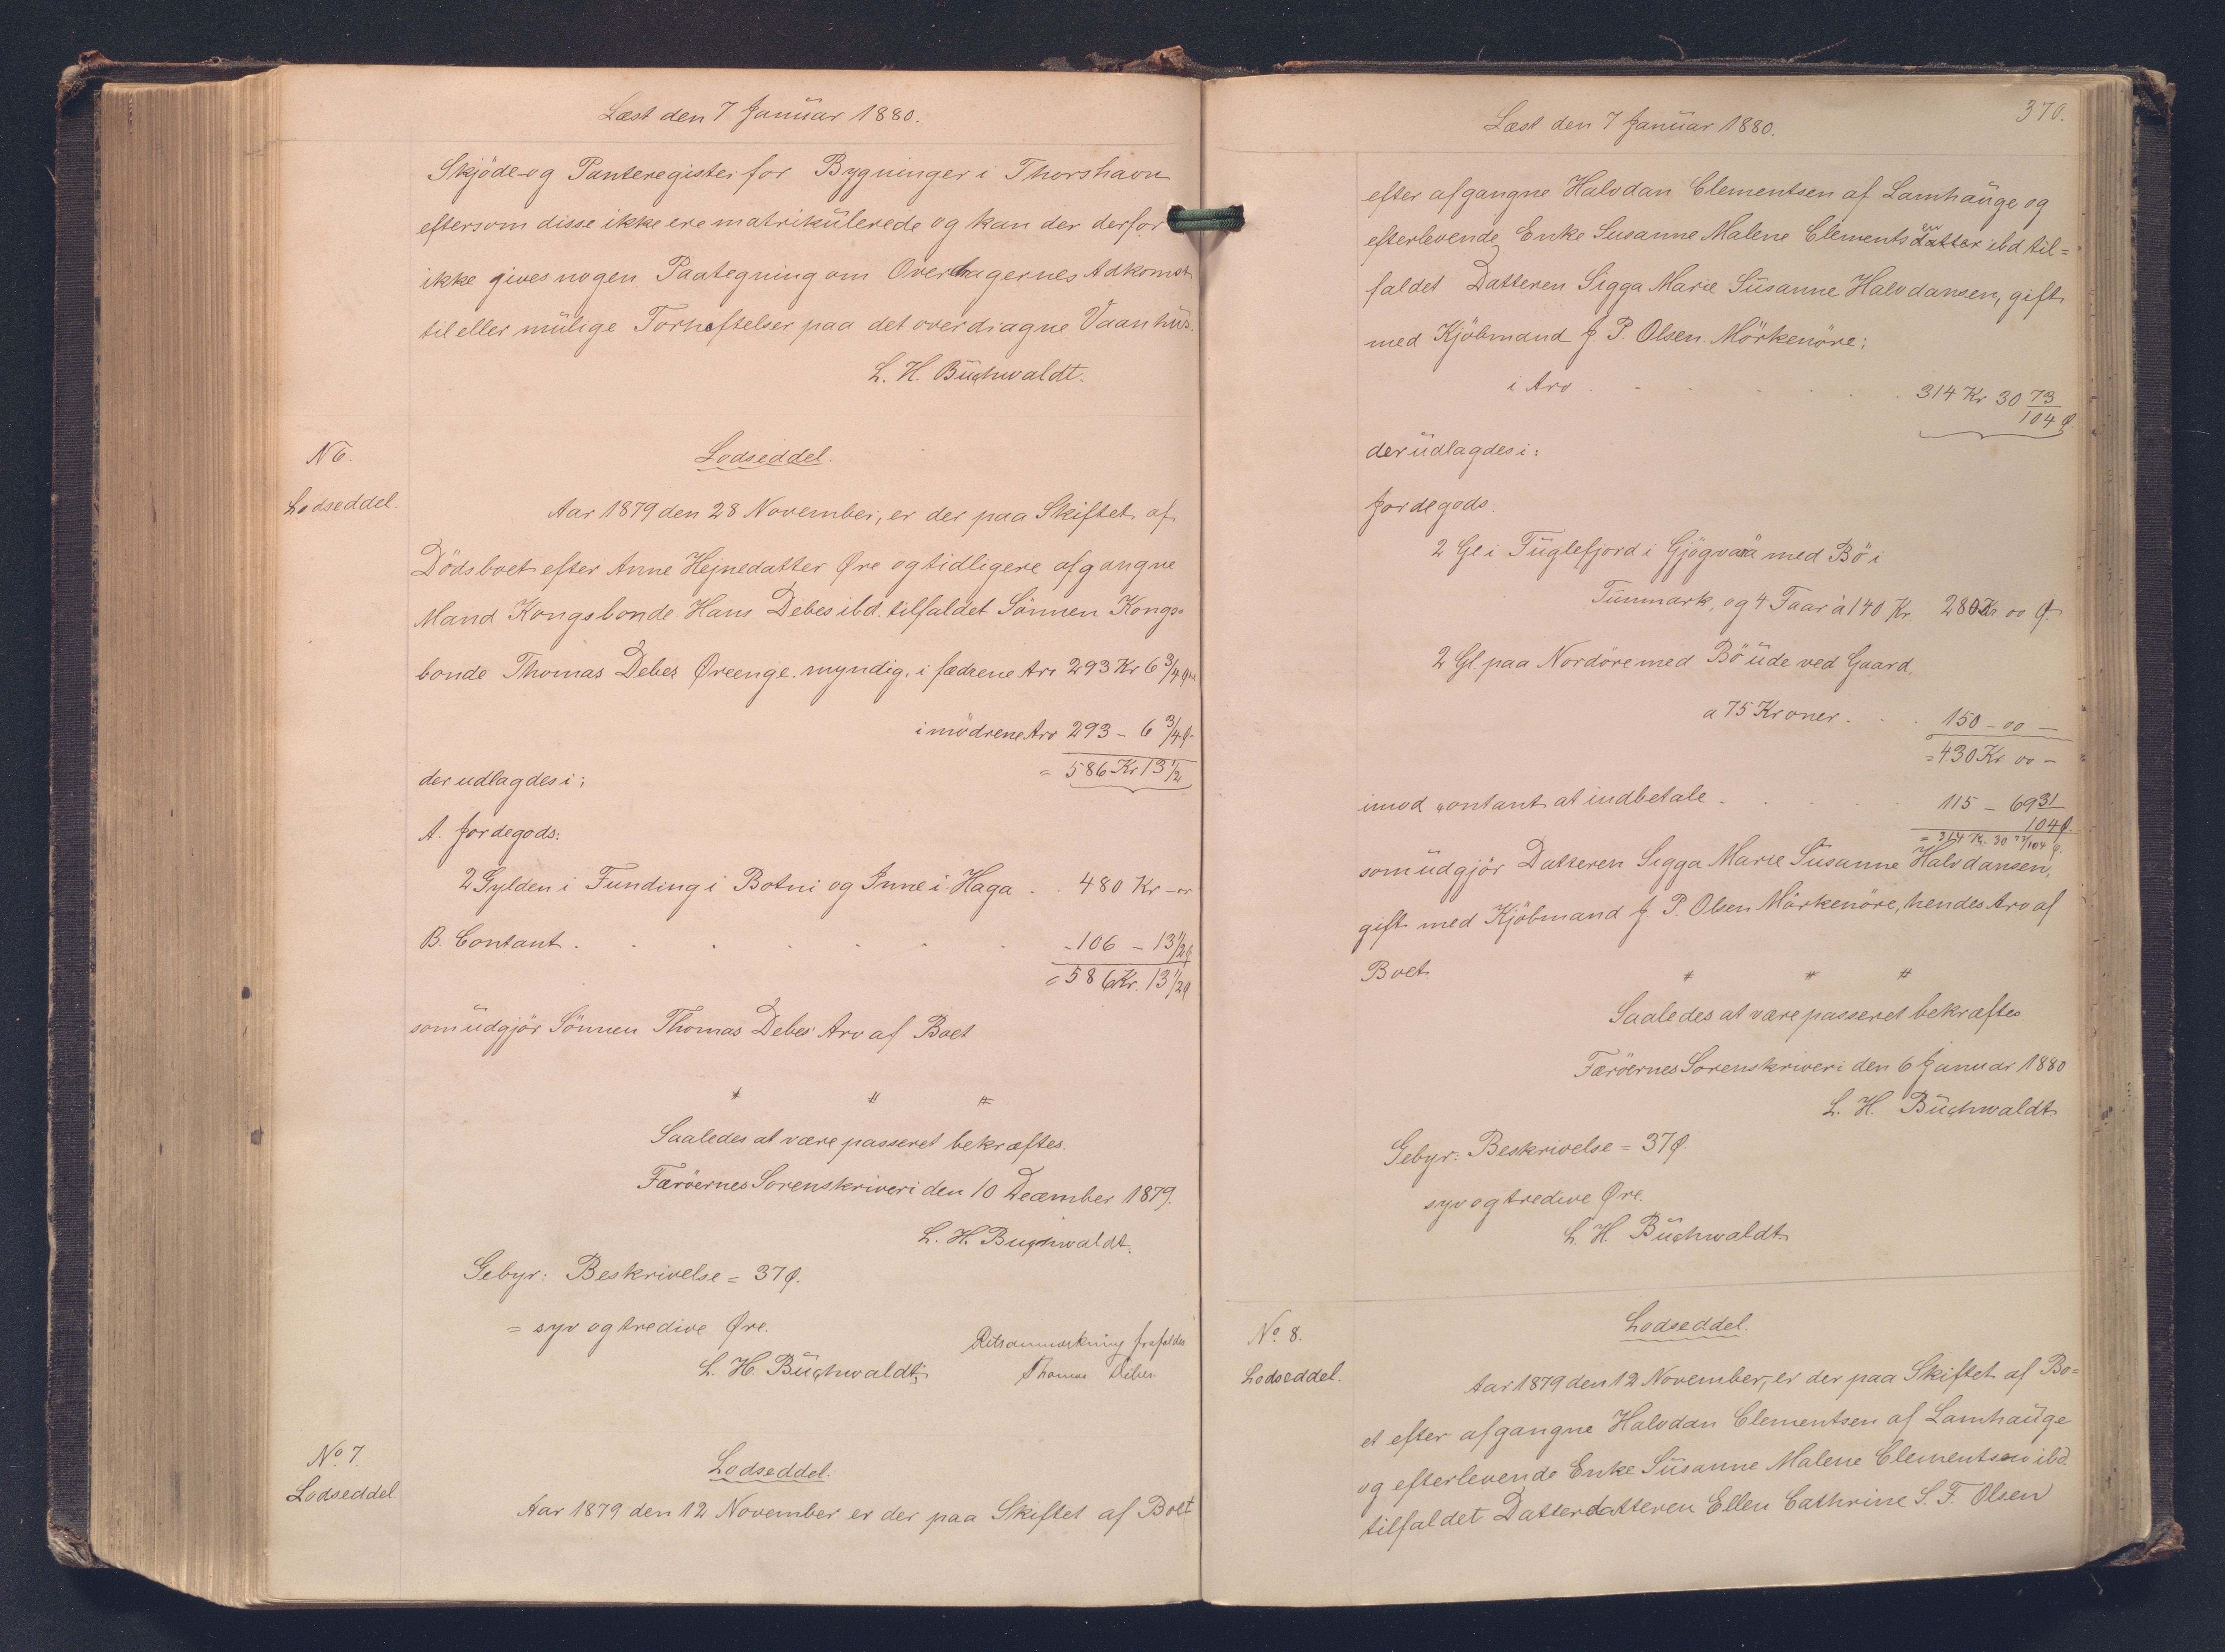 Læst den 7 Januar 1880.
Skjöde- og Panteregister for Bygninger i Thorshavn
eftersom disse ikke ere matrikülerede og kan der derfor
ikke gives nogen Paategning om Overdragernes Adkomst
til eller mülige Forheftelser paa det overdragne Vaanhüs.
L. H. Büchwaldt.
N 6.
Lodseddel.
Lodseddel.
Aar 1879 den 28 November, er der paa Skiftet af
Dödsboet efter Anne Hejnedatter Øre og tidligere afgangne
Mand Kongsbonde Hans Debes ibd. tilfaldet Sönnen Kongs-
bonde Thomas Debes Øreenge. myndig, i fædrene Arv 293 Kr 6 3/4 Øre
i mödrene Arv 293 - 6 3/4 Ø
= 586 Kr 13 1/2
der udlagdes i:
A. Jordegods:
2 Gylden i Funding i Botni og Inne i Haga . . 480 Kr - 00
B. Contant . . . . . . . 106 - 13 1/2 Ø
= 586 Kr. 13 1/2 Ø
som üdgjör Sönnen Thomas Debes' Arv af Boet
# # #
Saaledes at være passeret bekræftes.
Færöernes Sorenskriveri den 10 December 1879.
L. H. Buchwaldt.
Gebyr: Beskrivelse = 37 Ø.
= syv og tredive Øre.
L. H. Büchwaldt.
Retsanmærkning frafaldes
Thomas Debes.
No. 7
Lodseddel
Lodseddel.
Aar 1879 den 12 November er der paa Skiftet af Boet
370.
Læst den 7 Januar 1880.
efter afgangne Halvdan Clementsen af Lamhaüge og
efterlevende Enke Susanne Malene Clementsdatter ibd til=
faldet Datteren Sigga Marie Süsanne Halvdansen, gift
med Kjöbmand J. P. Olsen Mörkenöre;
i Arv . . . . . . 314 Kr 30 73/104 Ø.
der üdlagdes i:
Jordegods.
2 Gl i Füglefjord i Gjögvará med Bö i
Tünmark, og 4 Faar à 140 Kr. 280 Kr 00 Ø.
2 Gl paa Nordöre med Bö üde ved Gaard.
a 75 Kroner . . . 150 - 00 -
= 430 Kr 00 -
imod contant at indbetale . . . . 115 - 69 31/104 Ø.
= 314 Kr. 30 73/104 Ø.
som üdgjör Datteren Sigga Marie Süsanne Halvdansen,
gift med Kjöbmand J. P. Olsen Mörkenöre, hendes Arv af
Boet.
# # #
Saaledes at være passeret bekræftes
Færöernes Sorenskriveri den 6 Januar 1880
L. H. Büchwaldt
Gebyr: Beskrivelse = 37 Ø.
syv og tredive Øre.
L. H. Büchwaldt.
No. 8.
Lodseddel.
Lodseddel.
Aar 1879 den 12 November, er der paa Skiftet af Bo=
et efter afgangne Halvdan Clementsen af Lamhaüge
og efterlevende Enke Süsanne Malene Clementsen ibd
tilfaldet Datterdatteren Ellen Cathrine S. F. Olsen